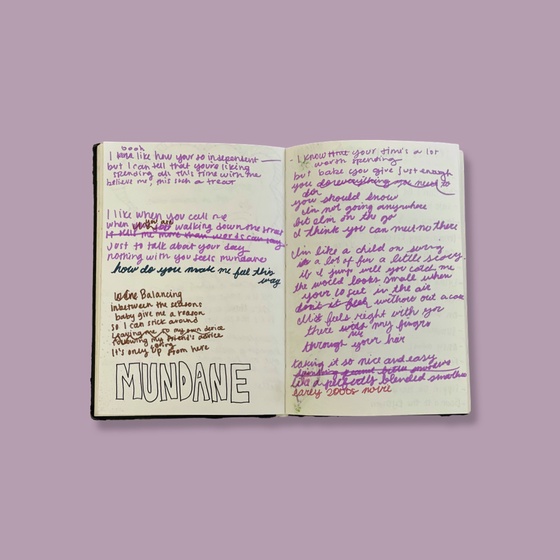 book
I like how your so independent
but I can tell that you're liking
spending all this time with me
believe me, this such a treat
I like when you call me
you are
when walking down the street
it tell me more than words can say
Just to talk about your day
nothing with you feels mundane
how do you make me feel this
way
We're Balancing
inbetween the seasons
baby give me a reason
so I can stick around
Leaving me to my own device
following my friend's advice
It's only up from here
MUNDANE
I know that your time's a lot
worth spending
but babe you give just enough
you do everything you need to
do
you should know
I'm not going anywhere
but also on the go
I think you can meet me there
I'm like a child on swing
a lot of fun a little scary
if I jump will you catch me
the world looks small when
your feet in the air
don't it without a care
It feels right with you
my fingers
through your hair
taking it so nice and easy
like a perfectly blended smoothie
early 2000s movie